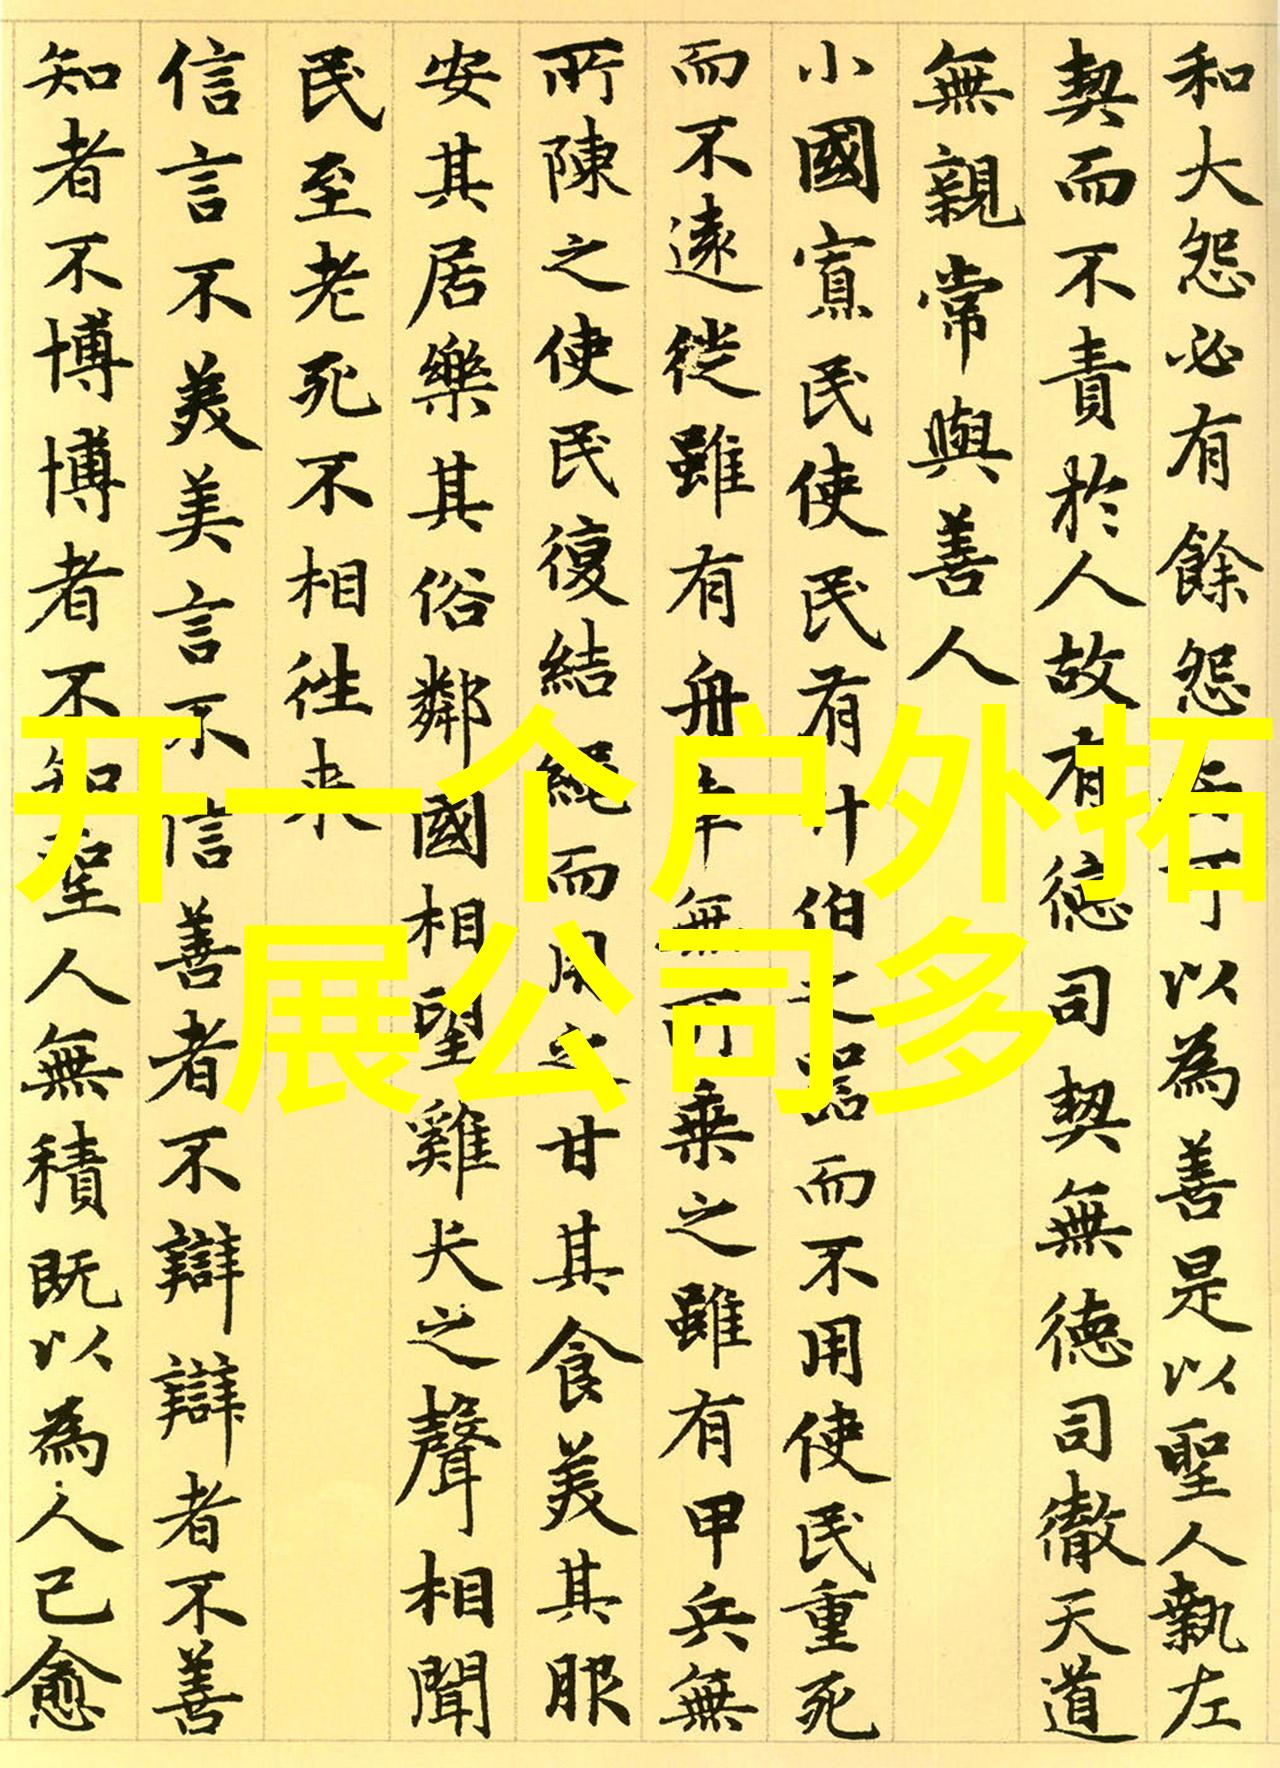 和大怨必有餘怨安可以為善是以聖人執左
契而不責於人故有德司契無德司徹天道
無親常與善人
小國寡民使民有什伯之器而不用使民重死
而不遠徙雖有舟車無所乗之雖有甲兵無
所陳之使民復結繩而用之甘其食美其服
安其居樂其俗鄰國相望雞犬之聲相聞
民至老死不相往来
信言不美美言不信善者不辯辯者不善
知者不博博者不知聖人無積既以為人己愈
开一个户外拓
展公司多